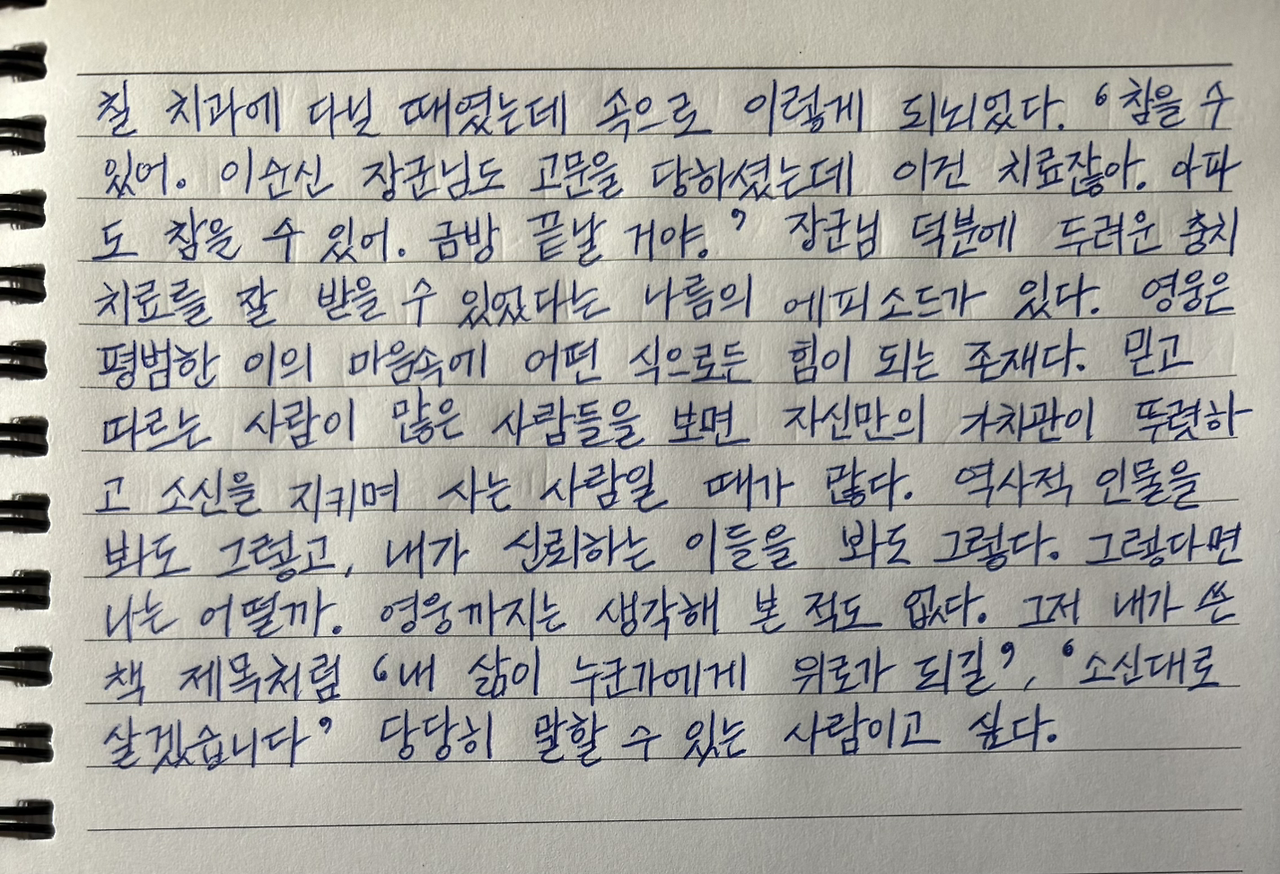 칠 치과에 다닐 때였는데 속으로 이렇게 되뇌었다. ‘참을 수
있어. 이순신 장군님도 고문을 당하셨는데 이건 치료잖아. 아파
도 참을 수 있어. 금방 끝날 거야.’ 장군님 덕분에 두려운 충치
치료를 잘 받을 수 있었다는 나름의 에피소드가 있다. 영웅은
평범한 이의 마음속에 어떤 식으로든 힘이 되는 존재다. 믿고
따르는 사람이 많은 사람들을 보면 자신만의 가치관이 뚜렷하
고 소신을 지키며 사는 사람일 때가 많다. 역사적 인물을
봐도 그렇고, 내가 신뢰하는 이들을 봐도 그렇다. 그렇다면
나는 어떨까. 영웅까지는 생각해 본 적도 없다. 그저 내가 쓴
책 제목처럼 ‘내 삶이 누군가에게 위로가 되길’, ‘소신대로
살겠습니다’ 당당히 말할 수 있는 사람이고 싶다.